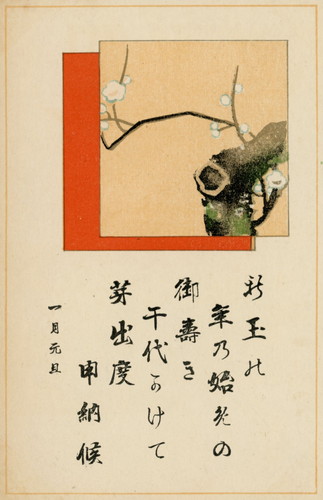 新玉の
年乃始免の
御壽き
千代かけて
芽出度
申納候
一月元旦